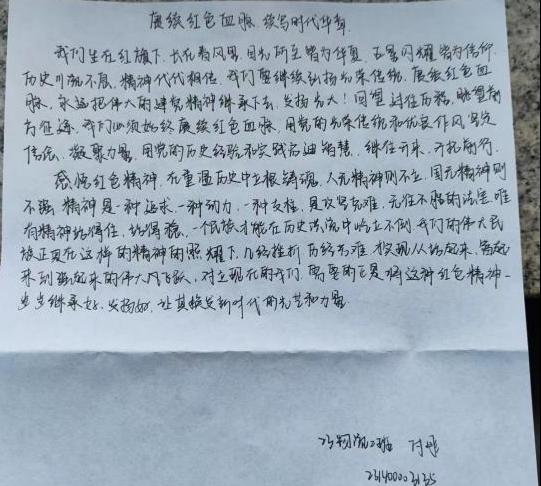 赓续红色血脉 续写时代华章
我们生在红旗下,长在春风里,目光所至皆为华夏,五星闪耀皆为信仰.
历史川流不息,精神代代相传,我们要继续弘扬光荣传统,赓续红色血
脉,永远把伟大的建党精神继承下去,发扬光大!回望过往历程,眺望前
方征途,我们必须始终赓续红色血脉,用党的光荣传统和优良作风坚定
信念,凝聚力量,用党的历史经验和实践启迪智慧,继往开来,开拓前行.
感悟红色精神,在重温历史中立根铸魂,人无精神则不立,国无精神则
不强.精神是一种追求,一种动力,一种支柱,是攻克难,无往不胜的法宝.唯
有精神站得住,站得稳,一个民族才能在历史洪流中屹立不倒.我们的伟大民
族正是在这样的精神的照耀下,几经挫折,历经苦难,实现从站起来,富起
来到强起来的伟大飞跃,对于现在的我们,需要的正是将这种红色精神一
步步继承好,发扬好,让其焕发新时代的光芒和力量.
23物流2班